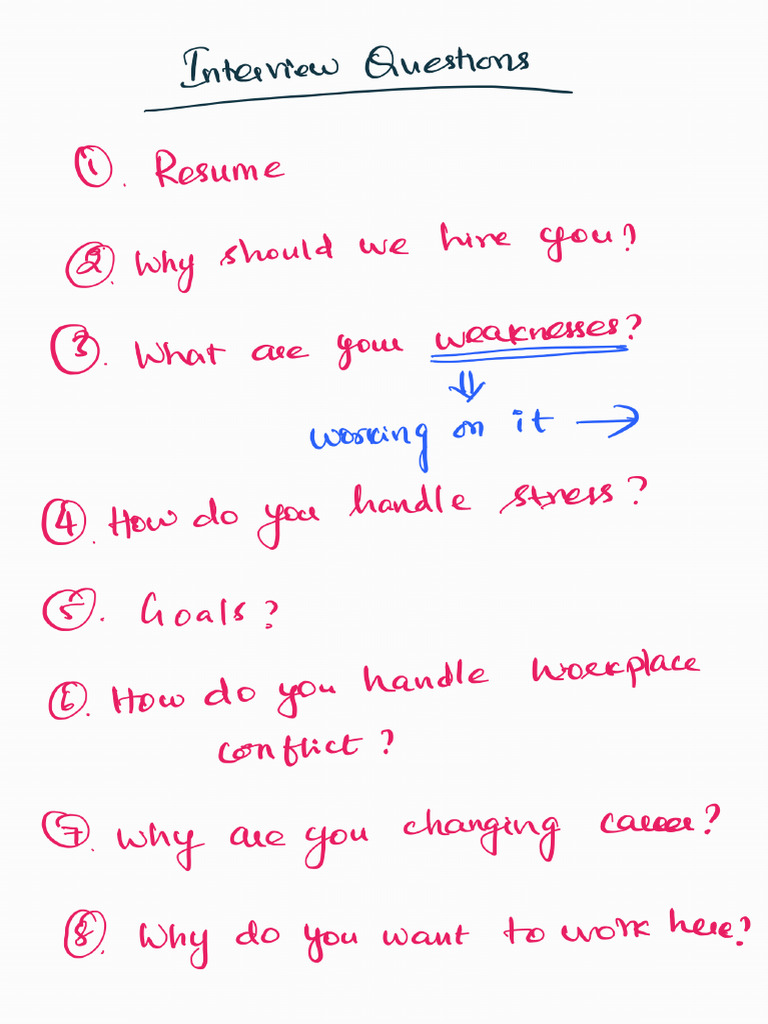 Interview Questions
1. Resume
2. Why should we hire you?
3. What are your weaknesses?
⇓
working on it →
4. How do you handle stress?
5. Goals?
6. How do you handle workplace
conflict?
7. Why are you changing career?
8. Why do you want to work here?